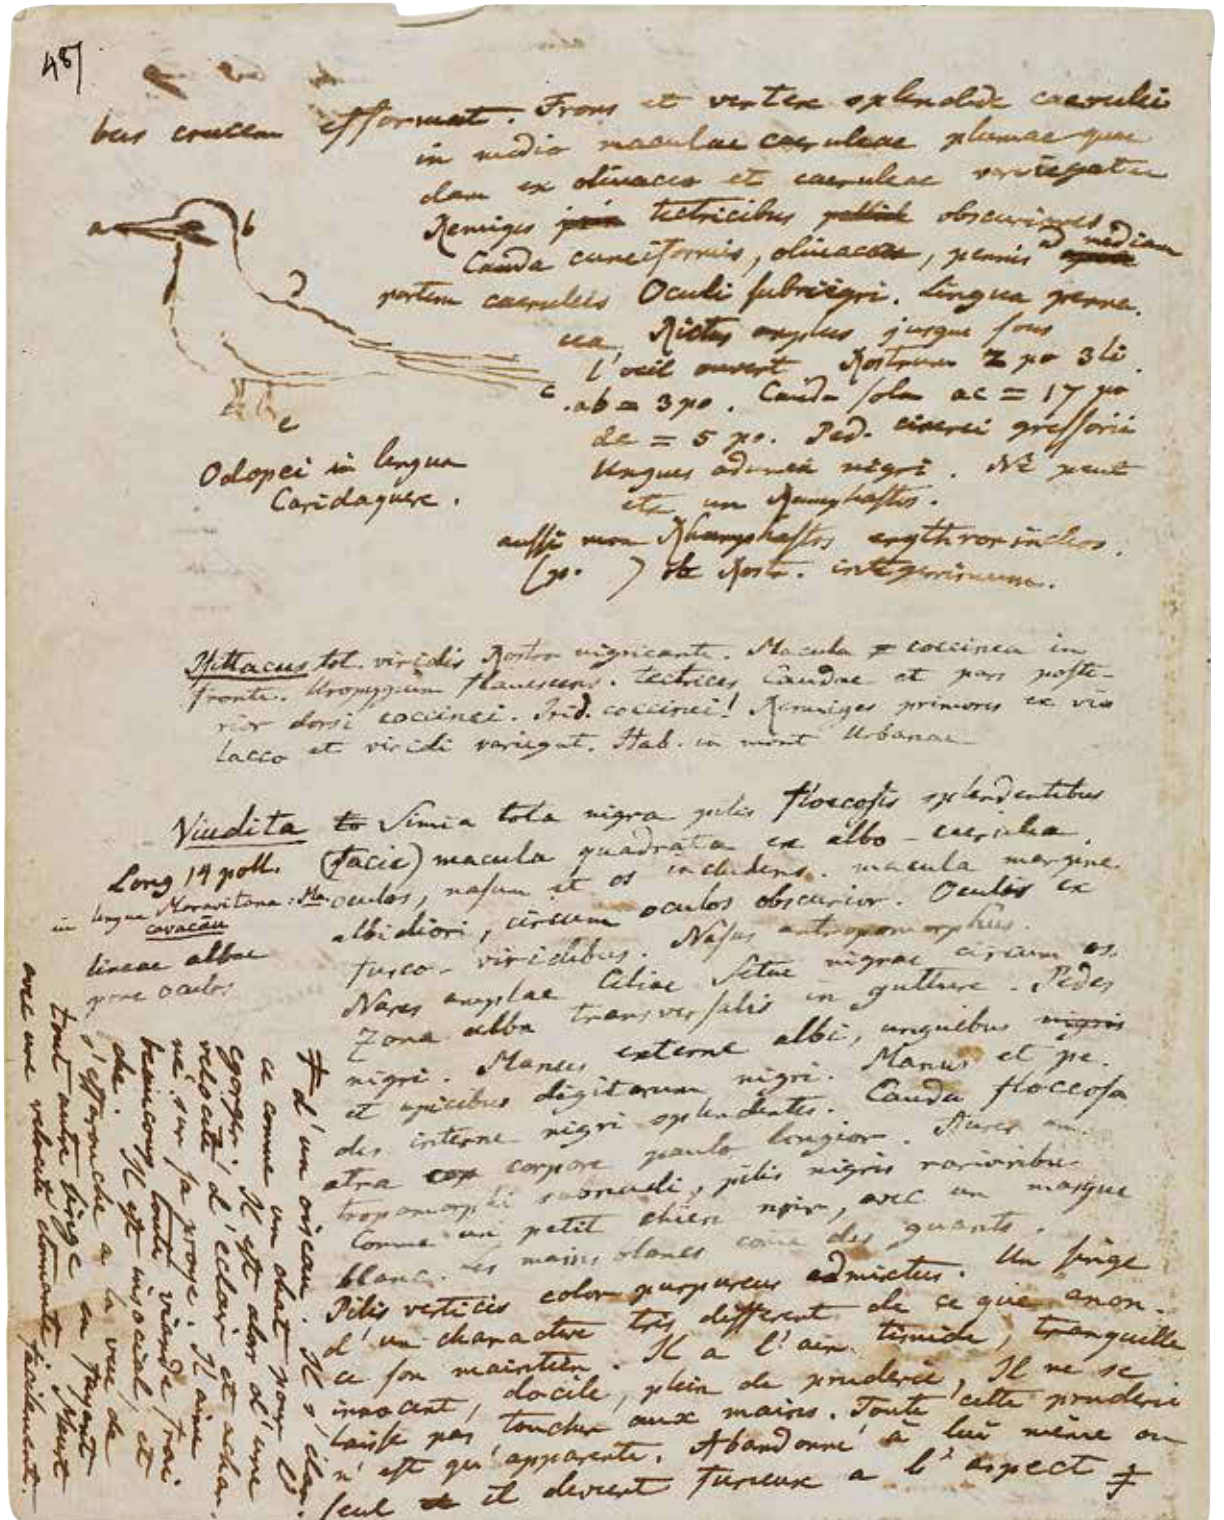 48]
bus crucem efformat. Frons et vertex splendide caerulei
in medio maculae caeruleae plumae quae
dam ex olivaceo et caeruleae variegatae
Remiges tectricibus obscuriores
Cauda cuneiformis, olivacea, pennis ad mediam
partem caeruleis Oculi subnigri. Lingua penna.
cea. Rictus amplus jusque sous
l'oeil ouvert Rostrum 2 po 3 li.
ab = 3 po. Cauda sola ac = 17 po
de = 5 po. Ped. cinerei gressorii
Ungues adunci nigri. Ne peut
etre un Ramphastos.
aussi mon Rhamphastos erythrorinchos.
(p. ) ob Rostr. integerrimum.
a
b
c
d
e
Odopei in lengua
Caridaquere.
Psittacus tot. viridis Rostro nigricante. Macula coccinea in
fronte. Uropygium flavescens. tectrices Caudae et pars poste-
rior dorsi coccinei. Irid. coccinei! Remiges primores ex vio
lacco et viridi variegat. Hab. in mont Urbanae
Viudita Simia tota nigra pilis floccosis splendentibus
(facie) macula quadrata ex albo-caerulea
oculos, nasum et os includens. macula margine
albidiori, circum oculos obscurior. Oculis ex
fusco-viridibus. Nasus antropomorphus.
Nares amplae Ciliae Setae nigrae circum os.
Zona alba transversalis in gutture. Pedes
nigri. Manus externe albi, unguibus nigris
et apicibus digitorum nigri. Manus et pe.
des interne nigri splendentes. Cauda floccosa
atra corpore paulo longior. Aures an
tropomorphi subnudi, pilis nigris rarioribus
Comme un petit chien noir, avec un masque
blanc. Les mains blancs come des guants.
Pilis verticis color purpureus admixtus. Un singe
d'un charactere tres different de ce que anon.
ce son maintien. Il a l'air timide, tranquille
innocent, docile, plein de pruderie, Il ne se
laisse pas toucher aux mains. Toute cette pruderie
n'est qu'apparente. Abandonné à lui même ou
seul il devient furieux a l'aspect ‡
Long 14 poll.
in lengua Maravitana: Ma.
cavacau
lineae albae
pone oculos
‡ d'un oiseau. Il s'élan.
ce comme un chat pour l'
egorger. Il est alor d'une
velocité d'eclair et achar.
né sur sa proye. Il aime
beaucoup toute viande frai
che. Il est insocial, et
s'effarouche a la vue de
tout autre singe en fuyant
avec une velocité etonnante facilement.